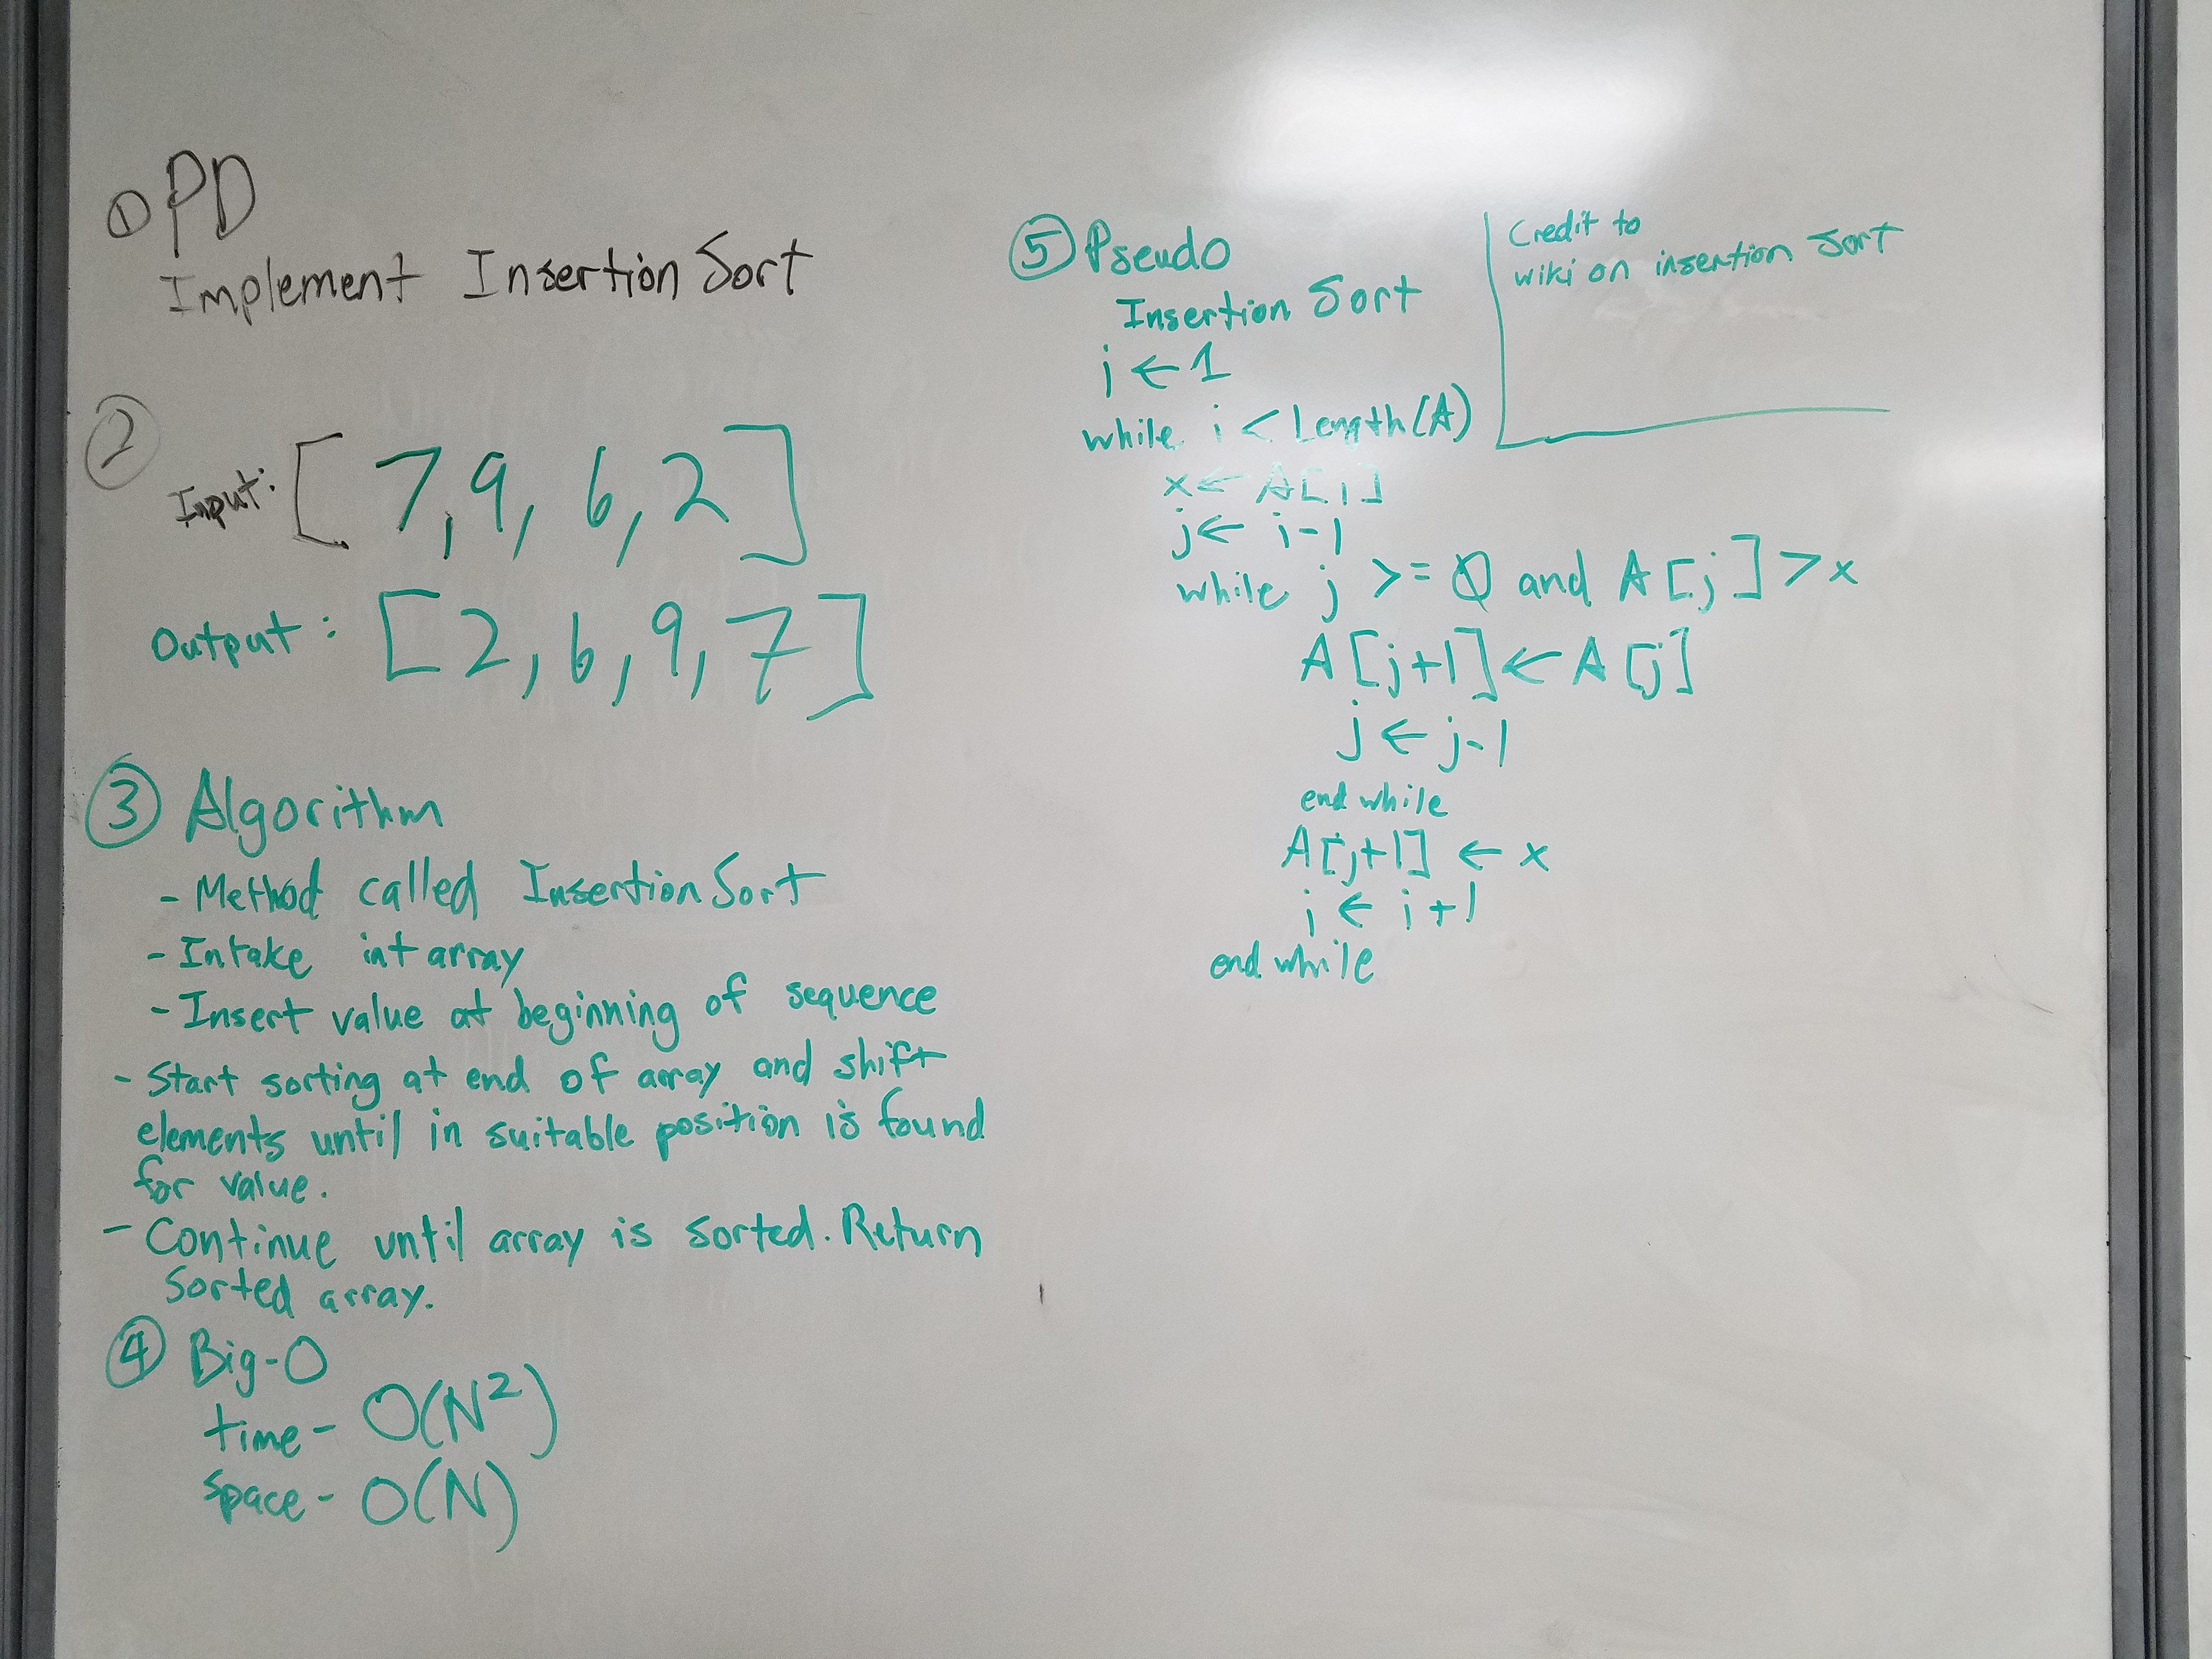 ① PD
Implement Insertion Sort
②
Input: [7, 9, 6, 2]
Output: [2, 6, 9, 7]
③ Algorithm
- Method called InsertionSort
- Intake int array
- Insert value at beginning of sequence
- Start sorting at end of array and shift
elements until in suitable position is found
for value.
- Continue until array is sorted. Return
sorted array.
④ Big-O
time - O(N²)
space - O(N)
⑤ Pseudo
Insertion Sort
i ← 1
while i < Length(A)
x ← A[i]
j ← i-1
while j >= 0 and A[j] > x
A[j+1] ← A[j]
j ← j-1
end while
A[j+1] ← x
i ← i+1
end while
Credit to
wiki on insertion sort